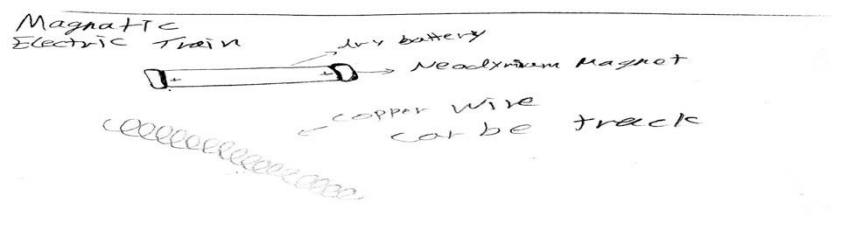 Magnatic
Electric Train
dry battery
Neodymium Magnet
copper wire
can be track